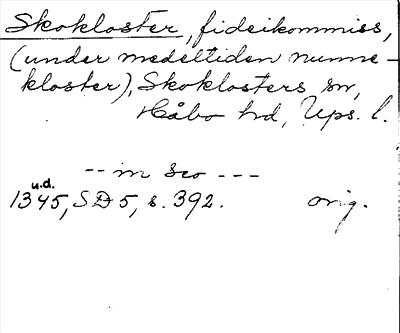 Skokloster, fideikommiss,
(under medeltiden nunne-
kloster), Skoklosters sn,
Håbo hd, Ups. l.
-- in Sco ---
u.d.
1345, SD 5, s. 392. orig.